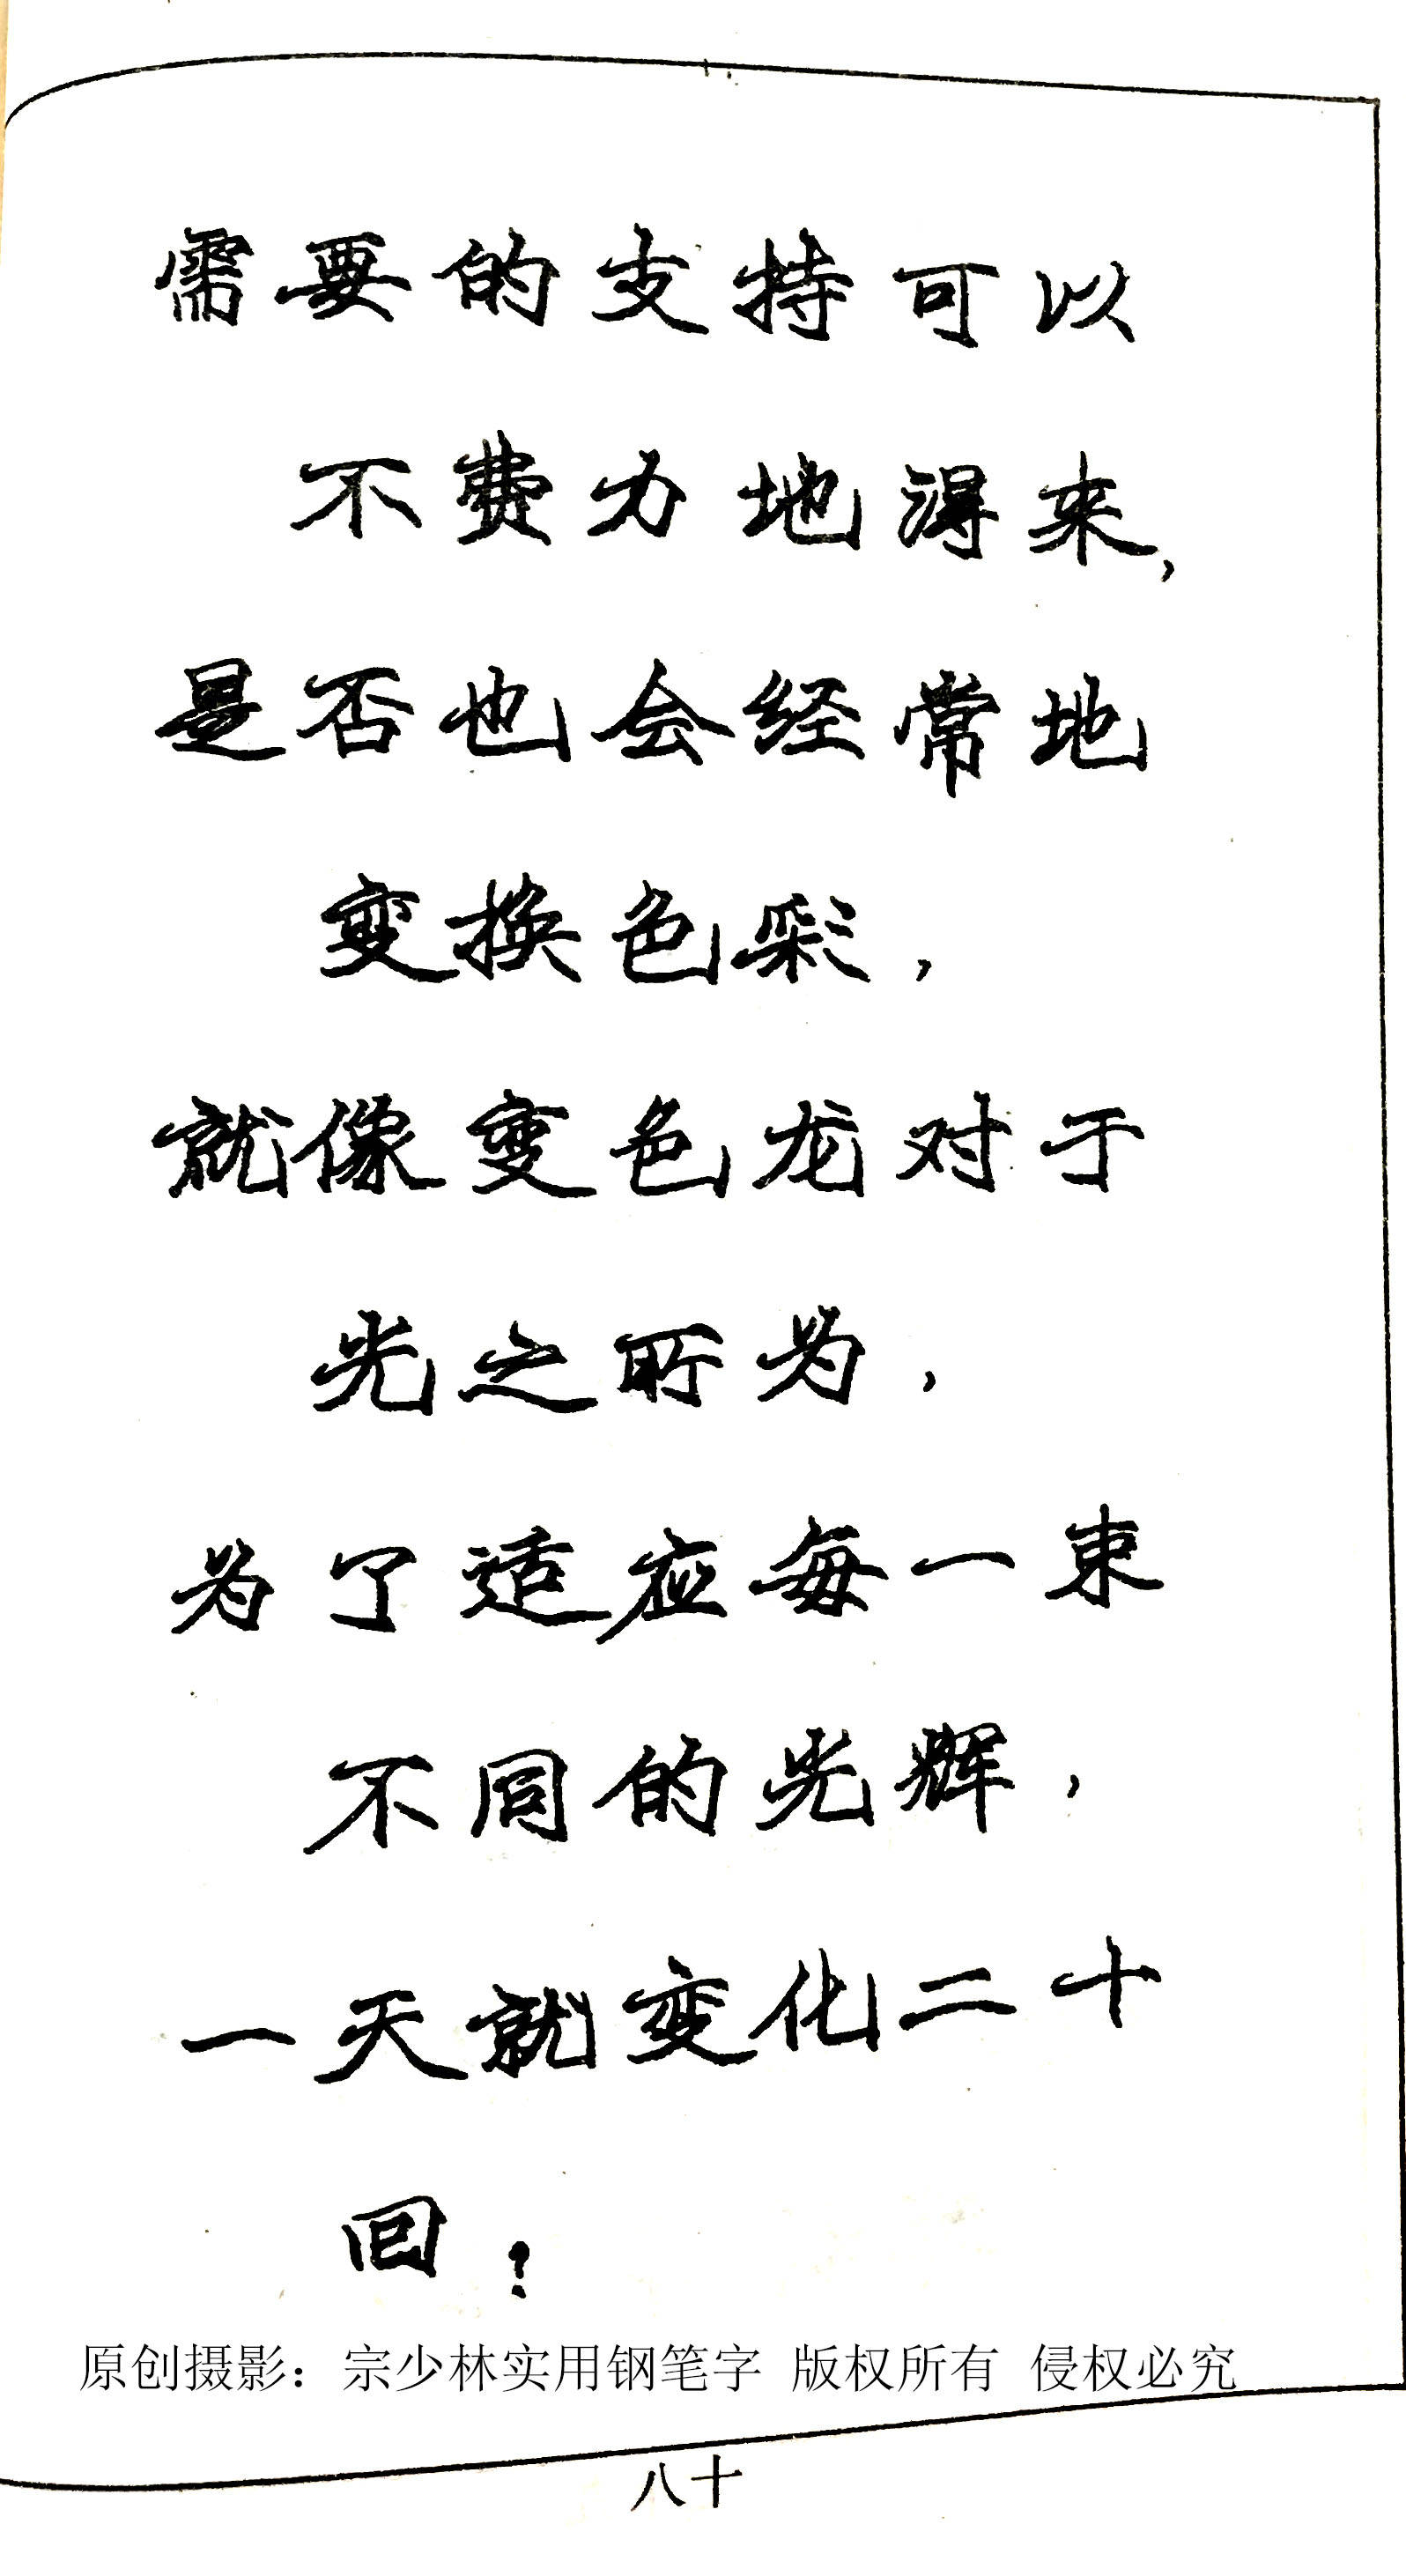 需要的支持可以
不费力地得来,
是否也会经常地
变换色彩,
就像变色龙对于
光之所为,
为了适应每一束
不同的光辉,
一天就变化二十
回?
原创摄影：宗少林实用钢笔字 版权所有 侵权必究
八十